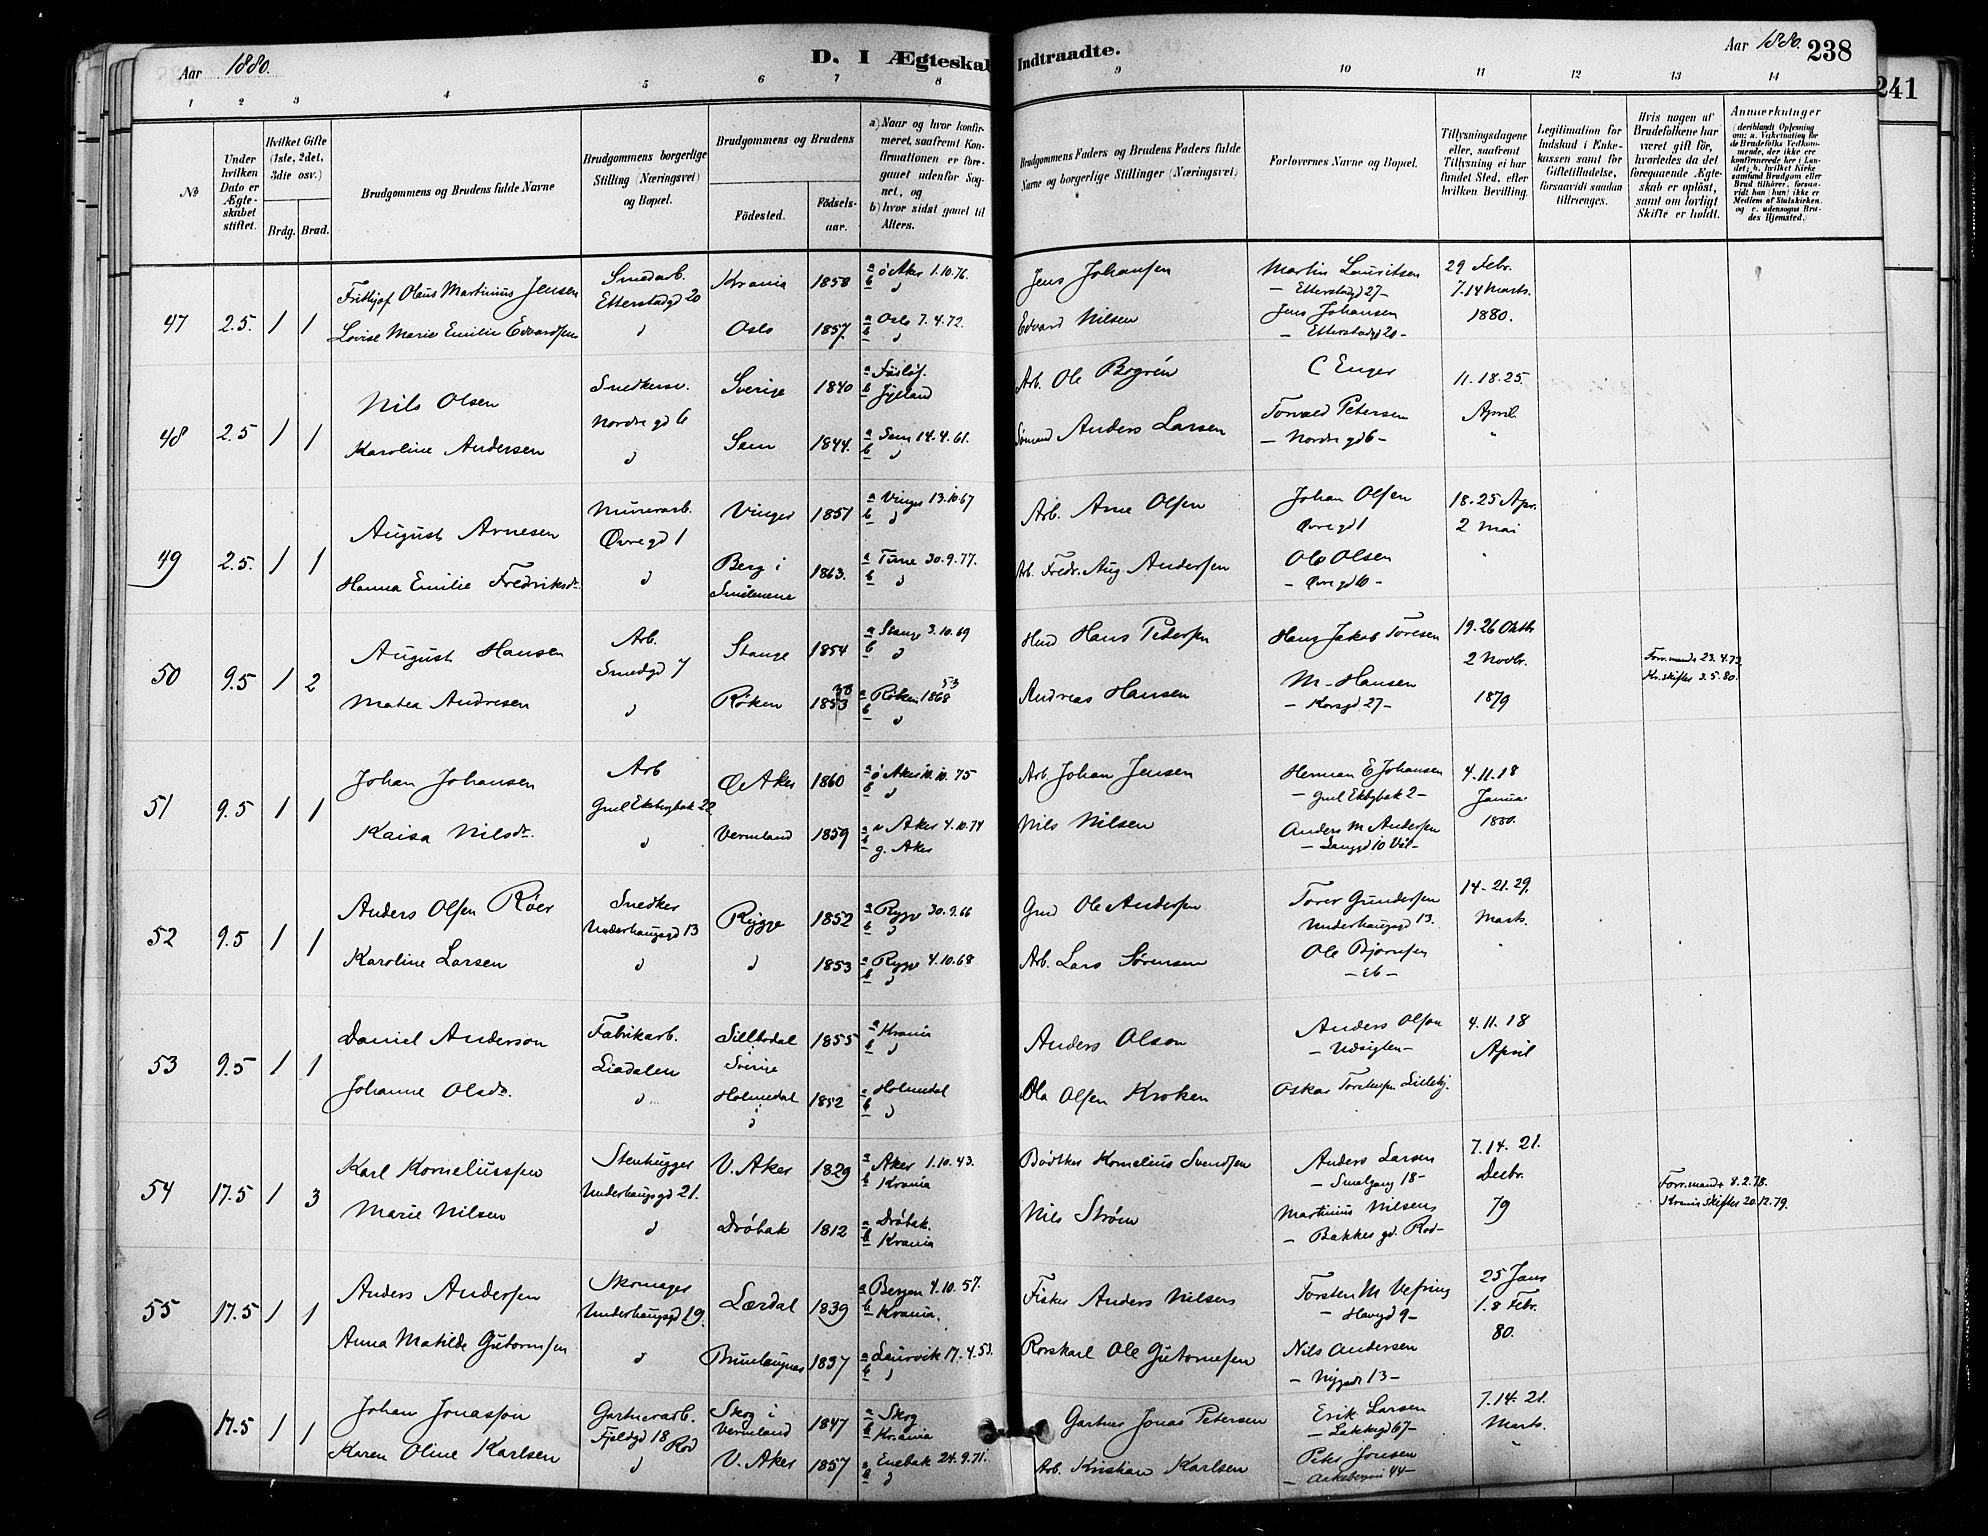 Aar 1880.
D. I Ægteskab Indtraadte.
Aar 1880. 238
241
1 2 3 4 5 6 7 8 9 10 11 12 13 14
No
Under hvilken Dato er Ægteskabet stiftet.
Hvilket Gifte (1ste, 2det, 3die osv.)
Brdg. Brud.
Brudgommens og Brudens fulde Navne
Brudgommens borgerlige Stilling (Næringsvei) og Bopæl.
Brudgommens og Brudens
Födested. Födsels-aar.
a) Naar og hvor konfirmeret, saafremt Konfirmationen er foregaaet udenfor Sognet, og
b) hvor sidst gaaet til Alters.
Brudgommens Faders og Brudens Faders fulde Navne og borgerlige Stillinger (Næringsvei)
Forlovernes Navne og Bopæl.
Tillysningsdagene eller, saafremt Tillysning ei har fundet Sted, efter hvilken Bevilling.
Legitimation for Indskud i Enkekassen samt for Giftetilladelse, forsaavidt saadan tiltrænges.
Hvis nogen af Brudefolkene har været gift för, hvorledes da det foregaaende Ægteskab er oplöst, samt om lovligt Skifte er holdt.
Anmerkninger (deriblandt Oplysning om: a. Vakcination for de Brudefolks Vedkommende, der ikke ere konfirmerede her i Landet; b. hvilket Kirkesamfund Brudgom eller Brud tilhörer, forsaavidt han (hun) ikke er Medlem af Statskirken. og c. udensogns Brudes Hjemsted.
47 2.5. 1 1 Frithjof Olaus Martinius Jensen Smedarb. Etterstadgd 20 Krania 1858 a ö Aker 1.10.76. b " Jens Johansen Martin Lauritsen - Etterstadgd 27- 29 Febr. 7.14 Marts
Lovise Marie Emilie Edvardsen " Oslo 1857. a Oslo 7.4.72. b " Edvard Nilsen Jens Johansen - Etterstadgd 20- 1880.
48 2.5 1 1 Nils Olsen Snedkersv. Nordregd 6 Sverige 1840 a b Jylland Arb. Ole Bogrén C Enger 11.18.25.
Karoline Andersen " Sem 1844. a Sem 14.4.61. b " Sömand Anders Larsen Torvald Petersen - Nordregd 6- April "
49 2.5. 1 1 August Arnesen Murerarb. Øvregd 1 Vinger 1851 a Vinger 13.10.67 b " Arb. Arne Olsen Johan Olsen Øvregd 1 18.25 Apr. 2 Mai
Hanna Emilie Fredriksdr. " Berg i Smålenene 1863. a Tune 30.9.77. b " Arb. Fredr. Aug Andersen Ole Olsen - Øvregd 10- "
50 9.5 1 2 August Hansen Arb. Smedgd 7 Stange 1854 a Stange 3.10.69 b " Hmd Hans Pedersen Hans Jakob Toresen 19.26 Oktb 2 Novbr. Forr. mand + 23.4.73.
Matea Andresen " Røken 1853 38 a Røken 1868 53 b " Andreas Hansen M. Hansen - Korsgd 27- 1879 Kr. skifter 3.5.80.
51 9.5 1 1 Johan Johansen Arb Grul Ekebgbak 22 Ø Aker 1860 a ö Aker 10.10.75 b " Arb Johan Jensen Herman E Johansen - Grul Ekebgbak 2- 4.11.18 Januar
Kaisa Nilsdr. " Vermland 1859 a v Aker 4.10.74 b g. Aker Nils Nilsen Anders M Andersen - Langgd 10 Vål- 1880.
52 9.5 1 1 Anders Olsen Röer Snedker Underhaugsgd 13 Rygge 1852 a Rygge 30.9.66 b " Grd Ole Andersen Torer Gundersen Underhaugsgd 13. 14-21.29. Marts.
Karoline Larsen " " 1853 a Rygge 4.10.68 b " Arb. Lars Sørensen Ole Bjørnsen - ib - "
53 9.5 1 1 Daniel Anderson Fabrikarb. Liadalen Sillbodal i Sverige 1855 a Krania b " Anders Olson Anders Olsen - Udsigten- 4.11.18 April
Johanne Olsdr. " Holmedal i " 1852 a Holmedal b " Ola Olsen Kroken Oskar Torstensen Lilleby.
54 17.5 1 3 Karl Korneliussen Stenhugger Underhaugsgd 21. V. Aker 1829 a Aker 1.10.43. b Krania Bödtker Kornelius Svendsen Anders Larsen - Smalgang 18- 7.14.21. Decbr. Forr. mand + 8.2.78.
Marie Nilsen " Dröbak 1812 a Dröbak. b Krania Nils Strøm Martinius Nilsen - Bakkegd. Rod- 79 Krania skifter 20.12.79.
55 17.5 1 1 Anders Andersen Skomager Underhaugsgd 19. Lærdal 1839 a Bergen 4.10.57. b Krania. Fisker Anders Nilsen Torsten M Vefring - Havegd 9- 25 Janr 1.8 Febr. 80.
Anna Matilde Gutormsen " Brunlangnes 1837 a Laurvik 17.4.53. b " Rorskarl Ole Gutormsen Nils Andersen - Nygd 13-
17.5 1 1 Johan Jonasson Gartnerarb. Fjeldgd 18 Rod Skog i Vermland 1847 a Skog b Krania Gartner Jonas Petersen Erik Larsen - Lakkegd 67- 7.14.21. Marts.
Karen Oline Karlsen " V. Aker 1857 a Enebak 24.9.71. b " Arb. Kristian Karlsen Peter Jonsen - Aakebergvei 44- "